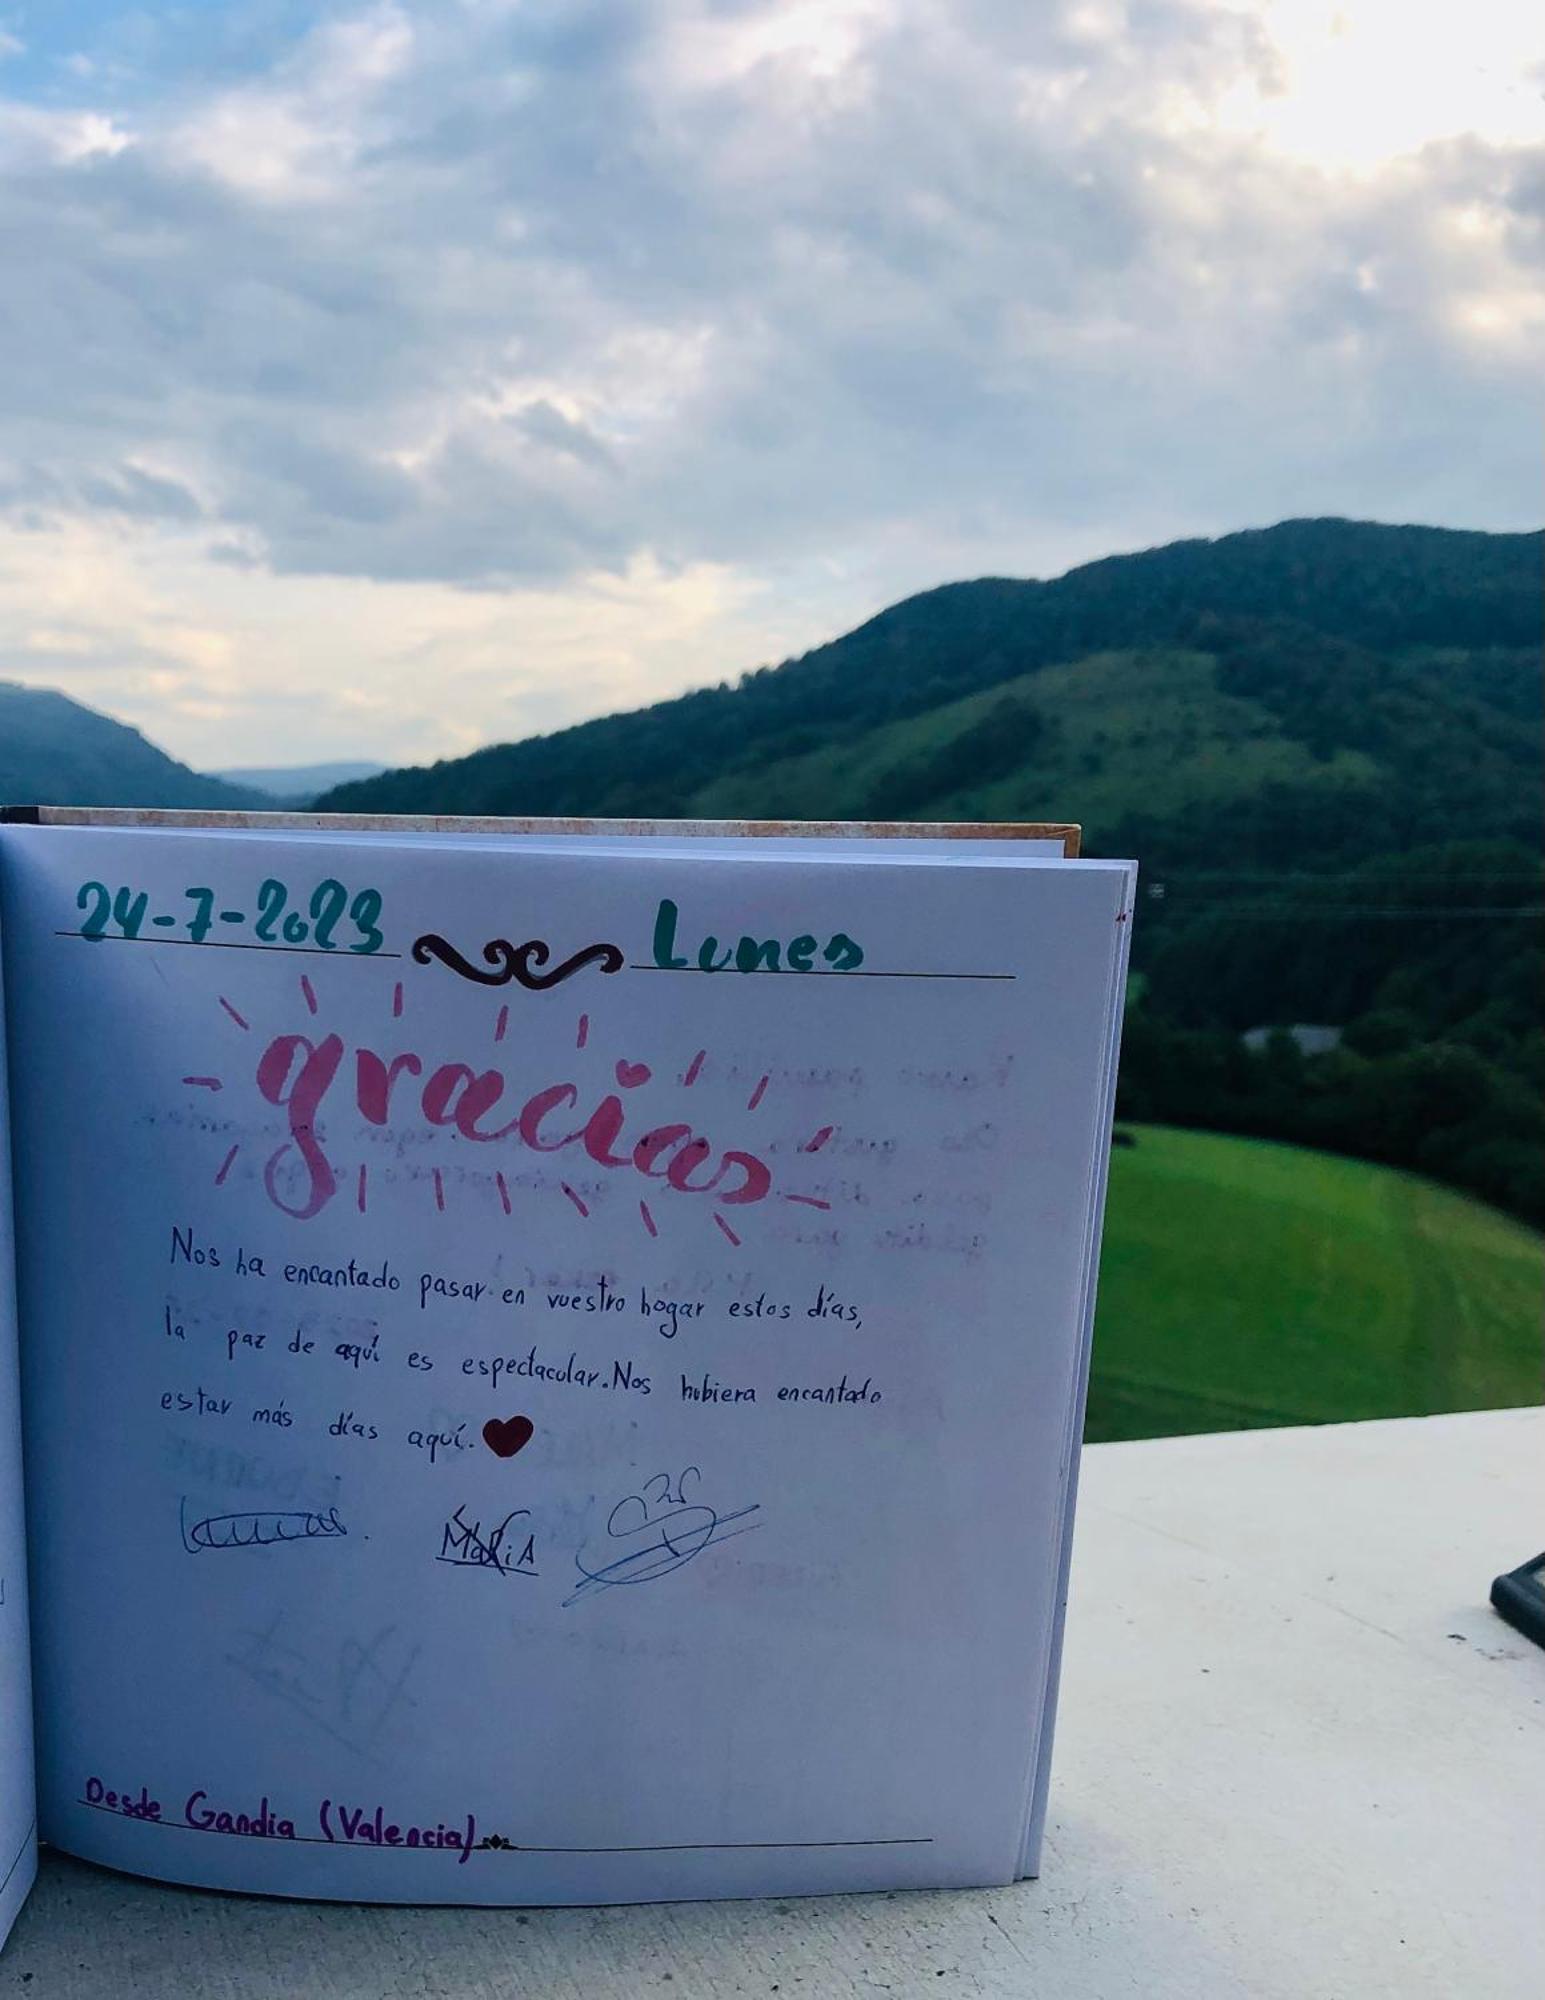 24-7-2023 Lunes
gracias
Nos ha encantado pasar en vuestro hogar estos días,
la paz de aquí es espectacular. Nos hubiera encantado
estar más días aquí.
MARiA
Desde Gandia (Valencia)